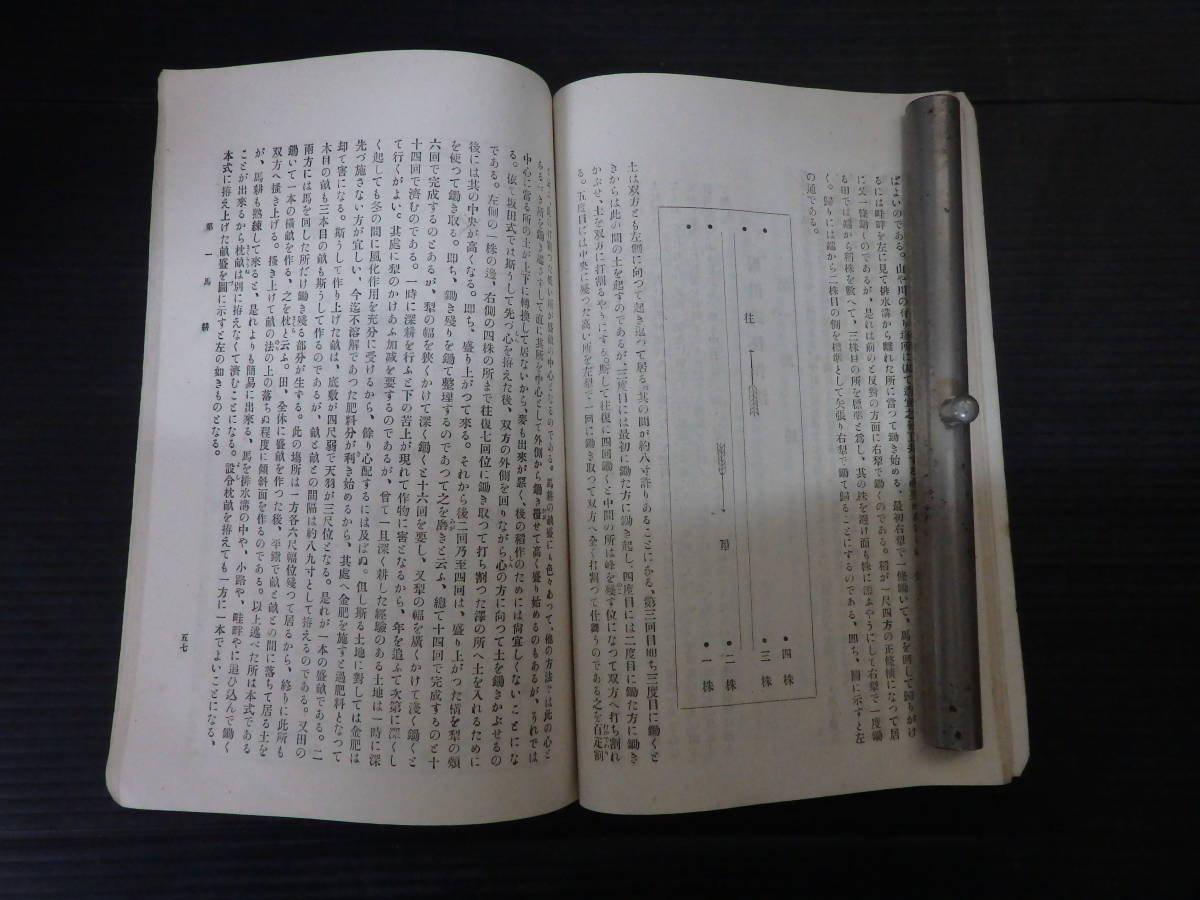 るには畦畔を左に見て排水溝から離れた所に當つて鋤き始める、最初右犂で一條鋤いて、馬を囘して歸りがけ
に又一條鋤くのであるが、是れは前のと反對の方面に右犂で鋤くのである。稻が一尺四方の正條植になつて居
る田では端から稻株を數へて、三株目の所を標準と爲し、其の株を避け面も株に添ふやうにして右犂で一度鋤
く。歸りには端から二株目の側を標準として矢張り右犂で鋤て歸ることにするのである、即ち、圖に示すと左
の通である。
四株
三株
二株
一株
往
歸
土は双方とも左側に向つて起き返つて居る、其の間が約八寸許りあることになる、第三囘目即ち三度目に鋤くと
きからは此の間の土を起すのであるが三度目には最初に鋤た方に鋤き起し、四度目には二度目に鋤た方に鋤き
かぶせ、土を双方に打割るやうにする。斯して往復に四囘鋤くと中間の所は峰を殘す位になつて双方へ打ち割れ
る。五度目には中央に殘つた高い所を左犂で一囘に鋤き取つて双方へ全く打割つて仕舞うのである之を百疋割
ある一ヶ所を鋤き起さずして直に其所を中心として外側から鋤き覆せて高く盛り始めるのもあるが、うれでは
中心に當る所の土が上下に轉換して居ないから、麥も出來が惡く、後の稻作のためには尙宜しくないことにな
る。依て坂田式では斯うして先づ心を拵えた後、双方の外側を囘りながら心の方に向つて土を鋤きかぶせるの
である。左側の一株の邊、右側の四株の所まで往復七囘位に鋤き取つて打ち割つた澤の所へ土を入れるために
後には其の中央が高くなる。即ち、盛り上がつて來る。それから後二囘乃至四囘は、盛り上がつた橫を犂の類
を使つて鋤き取る。即ち、鋤き殘りを鋤て整理するのであつて之を磨きと云ふ、總て十四囘で完成するのと十
六囘で完成するのとあるが、犂の幅を狹くかけて深く鋤くと十六囘を要し、又犂の幅を廣くかけて淺く鋤くと
十四囘で濟むのである。一時に深耕を行ふと下の苦土が現れて作物に害となるから、年を追ふて次第に深くし
て行くがよい。其處に犂のかけあふ加減を要するのであるが、曾て一旦深く耕した經驗のある土地は一時に深
く起しても冬の間に風化作用を充分に受けるから、餘り心配するには及ばぬ。但し斯る土地に對しては金肥は
先づ施さない方が宜しい、今迄不溶解であつた肥料分が利き始めるから、其處へ金肥を施すと過肥料となつて
却て害になる。斯うして作り上げた畝は、底敷が四尺弱で天羽が三尺位となる。是れが一本の盛畝である。二
本目の畝も三本目の畝も斯うして作るのであるが、畝と畝との間隔は約八九寸として拵えるのである。又田の
兩方には馬を囘した所だけ鋤き殘る部分が生ずる。此の場所は一方各六尺幅位殘つて居るから、終りに此所も
鋤いて一本の橫畝を作る、之を枕と云ふ。田、全体に盛畝を作つた後、平鍬で畝と畝との間に落ちて居る土を
双方へ搔き上げる。搔き上げて畝の法の上の落ちぬ程度に傾斜面を作るのである。以上述べた所は本式である
が、馬耕も熟練して來ると、是れよりも簡易に出來る、馬を排水溝の中や、小路や、畦畔やに追ひ込んで鋤く
ことが出來るから枕畝は別に拵えなくて濟むことになる。設令枕畝を拵えても一方に一本でよいことになる、
本式に拵え上げた畝盛を圖に示すと左の如きものとなる。
第一 馬耕
五七